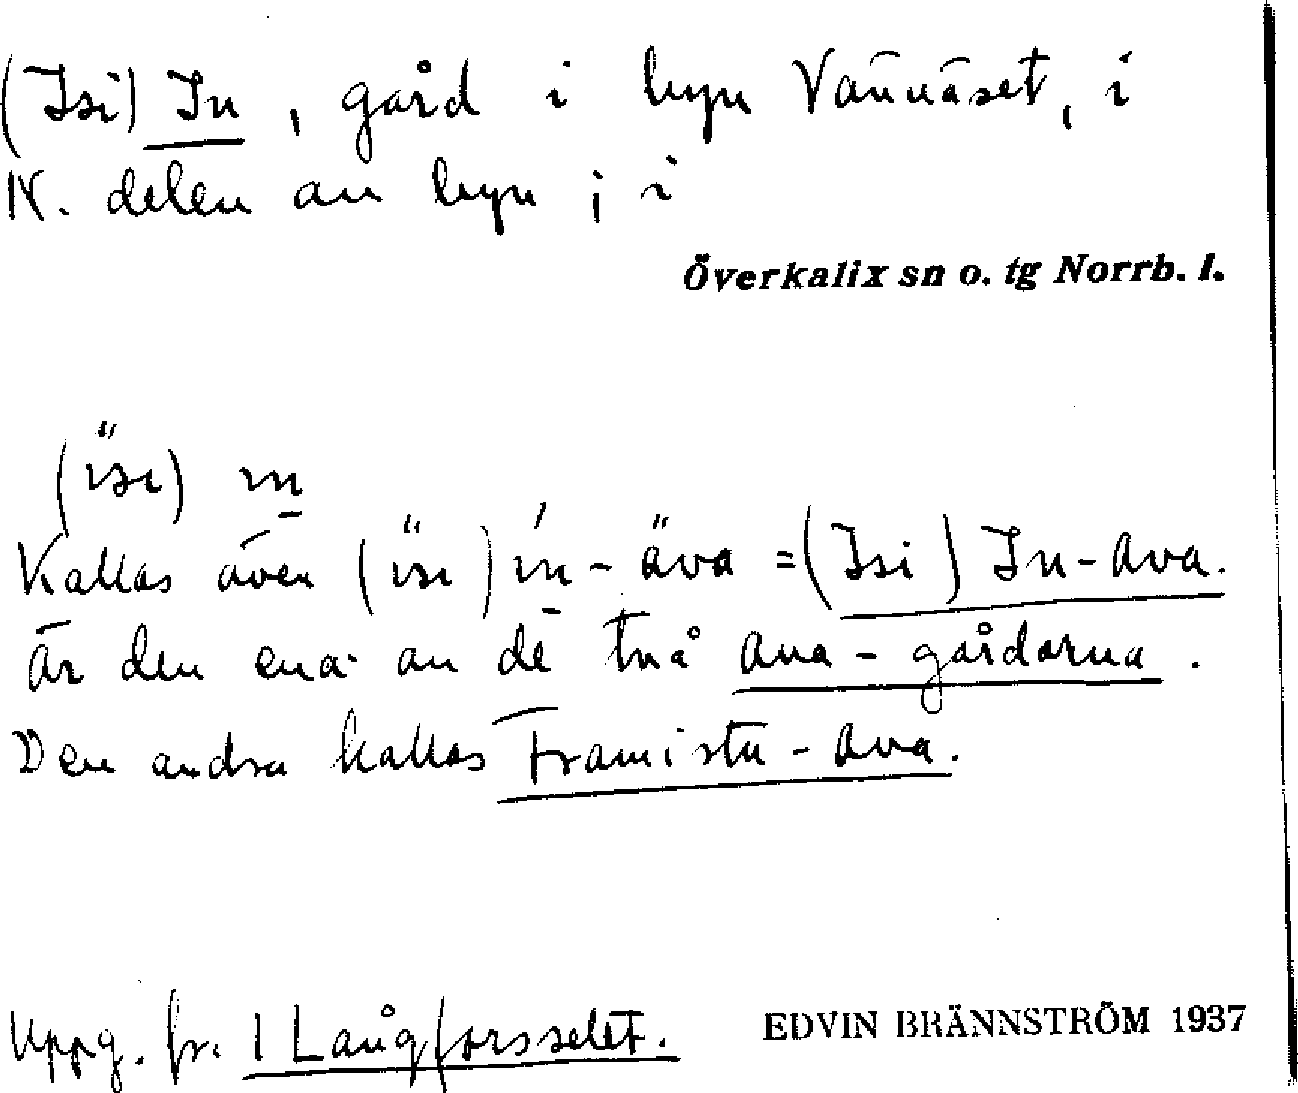 (Isi) In, gård i byn Vännäset, i
N. delen av byn; i
Överkalix sn o. tg Norrb. l.
(ïsı) ın
Kallas även (ïsı) ín-äva = (Isi) In-Ava.
Är den ena av de två Ava-gårdarna.
Den andra kallas Framistu-Ava.
Uppg. fr. 1 Långforsselet. EDVIN BRÄNNSTRÖM 1937